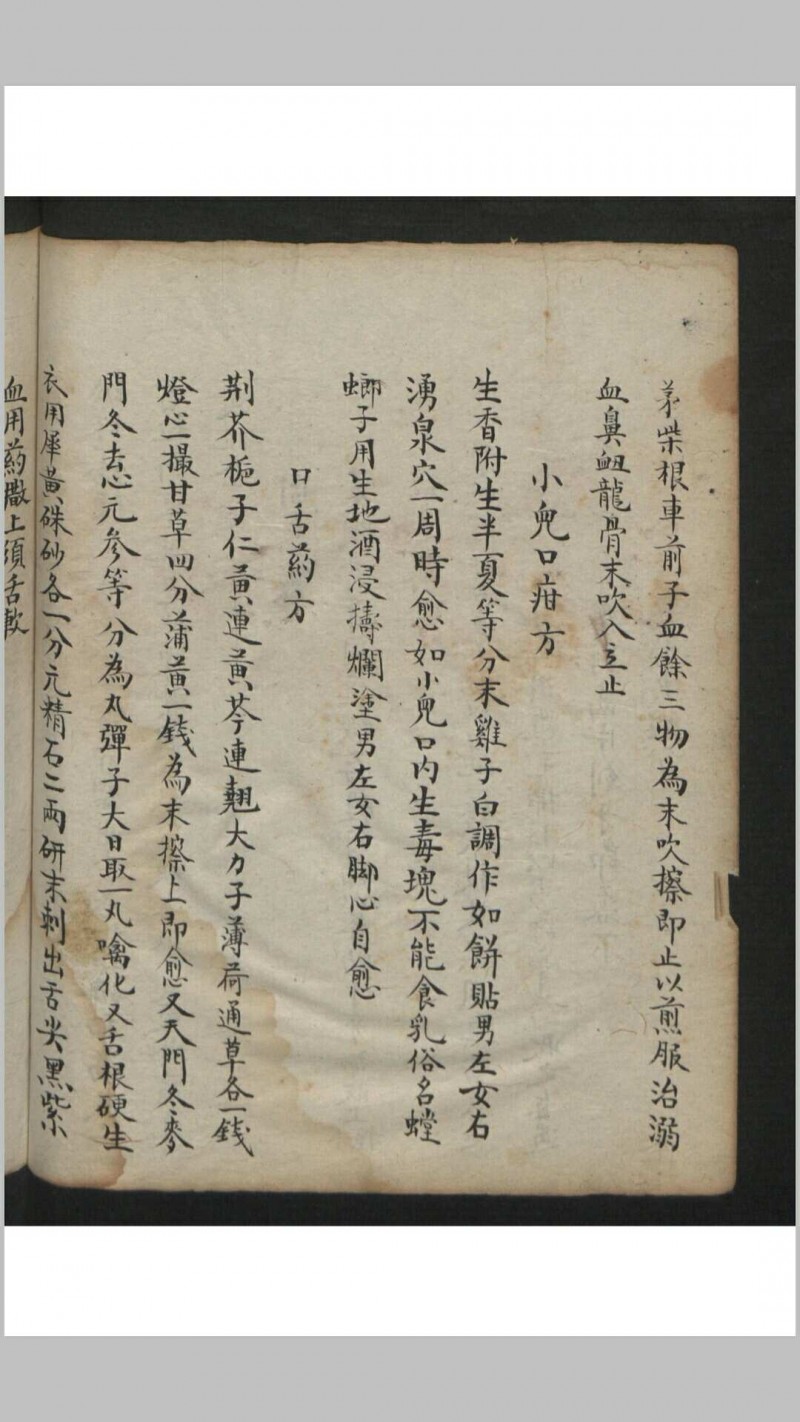 茅柴根車前子血餘三物為末吹擦即止以煎服治溺
血鼻衄龍骨末吹入立止
小兒口疳方
生香附生半夏等分末雞子白調作如餅貼男左女右
湧泉穴一周時愈如小兒口内生毒塊不能食乳俗名螳
螂子用生地酒浸擣爛塗男左女右脚心自愈
口舌药方
荆芥梔子仁黄連黄芩連翹大力子薄荷通草各一錢
燈心一撮甘草四分蒲黄一錢為末擦上即愈又天門冬麥
門冬去心元参等分為丸彈子大日取一丸噙化又舌根硬生
衣用犀黄硃砂各一分元精石二兩研末刺出舌尖黑紫
血用药撒上須舌軟